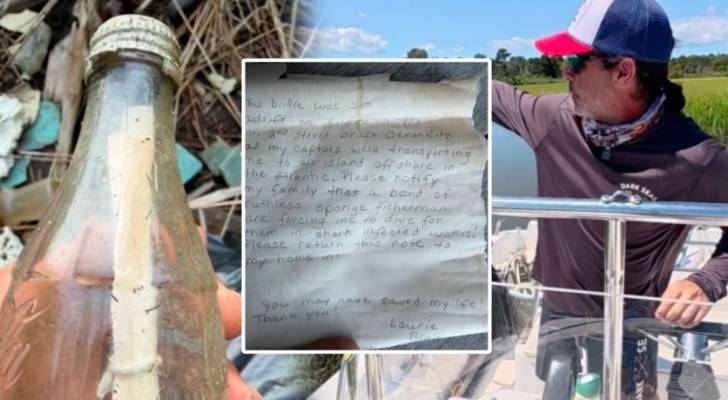 This bottle was set
adrift on
on 2nd street beach Ocean City,
as my captors were transporting
me to an island offshore in
the Atlantic. Please notify
my family that a band of
ruthless sponge fisherman
are forcing me to dive for
them in shark infested waters!
Please return this note to
my home in:
You may have saved my life!
Thank you!
Laurie
DARK SEA